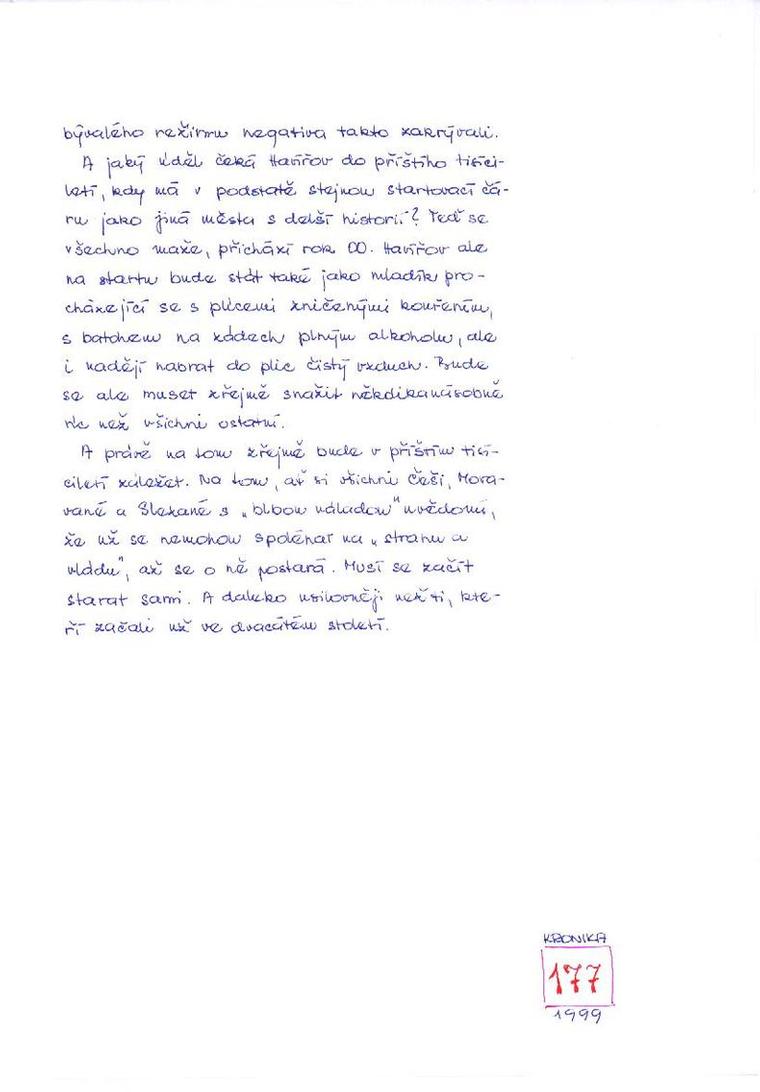 bývalého režimu negativa takto zakrývali.
A jaký úděl čeká Havířov do příštího tisíci-
letí, kdy má v podstatě stejnou startovací čá-
ru jako jiná města s delší historií? Teď se
všechno maže, přichází rok 00. Havířov ale
na startu bude stát také jako mladík pro-
cházející se s plícemi zničenými kouřením,
s batohem na zádech plným alkoholu, ale
i nadějí nabrat do plic čistý vzduch. Bude
se ale muset zřejmě snažit několikanásobně
víc než všichni ostatní.
A právě na tom zřejmě bude v příštím tisí-
ciletí záležet. Na tom, ať si všichni Češi, Mora-
vané a Slezané s „blbou náladou" uvědomí,
že už se nemohou spoléhat na „stranu a
vládu", až se o ně postará. Musí se začít
starat sami. A daleko usilovněji než ti, kte-
ří začali už ve dvacátém století.
KRONIKA
177
1999